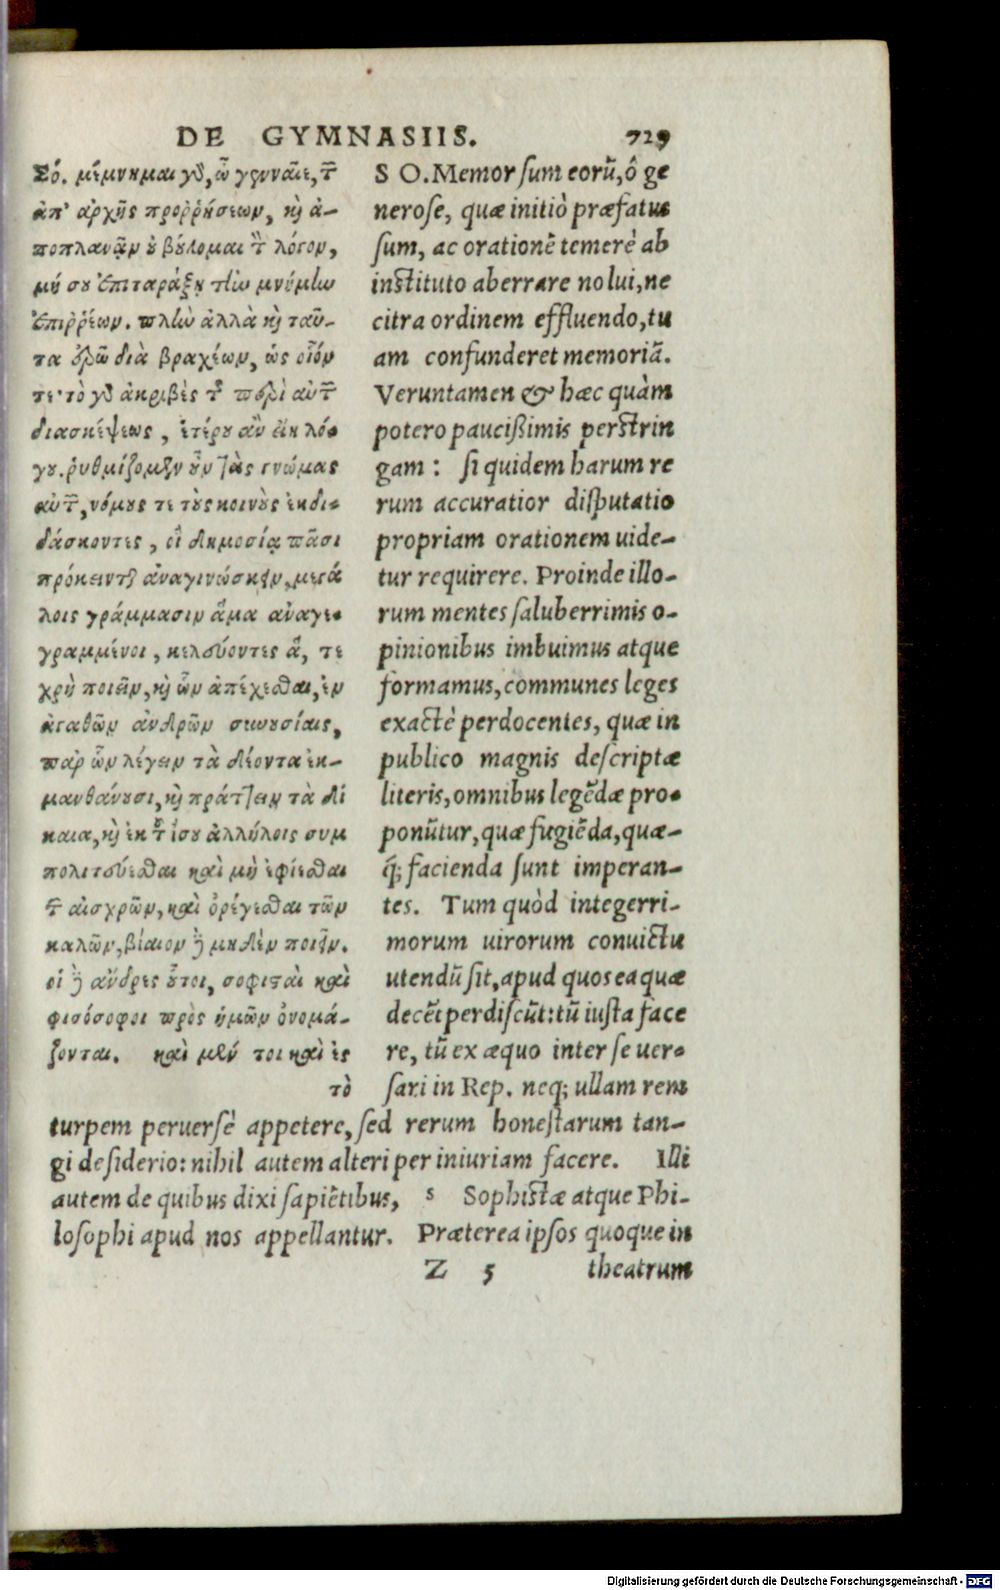 DE GYMNASIIS. 729
Σό. μέμνημαι γδ, ὦ γενναῖε, τ῀
ἀπ' ἀρχῆς προῤῥήσεων, κὶ ἀ-
ποπλανᾷν ὀ βύλομαι τ῀ λόγον,
μή σου ἐπιταράξῃ τὴν μνήμην
ἐπιῤῥέων. πλὴν ἀλλὰ κὶ ταῦ-
τα ἐρῶ διὰ βραχέων, ὡς οἷόν
τε· τὸ γδ ἀκριβὲς τ῀ περὶ αὐτ῀
διασκέψεως, ἑτέρου ἂν εἴη λό-
γου. ῥυθμίζομεν ὖν τὰς γνώμας
αὐτ῀, νόμους τε τοὺς κοινοὺς ἐκδι-
δάσκοντες, οἳ δημοσίᾳ πᾶσι
πρόκεινται ἀναγινώσκειν, μεγά
λοις γράμμασιν ἅμα ἀναγε-
γραμμένοι, κελεύοντες ἅ, τε
χρὴ ποιεῖν, κὶ ὧν ἀπέχεσθαι, ἐν
ἀγαθῶν ἀνδρῶν συνουσίαις,
παρ' ὧν λέγειν τὰ δέοντα ἐκ-
μανθάνουσι, κὶ πράττειν τὰ δί
καια, κὶ ἐκ τ῀ ἴσου ἀλλήλοις συμ
πολιτεύεσθαι καὶ μὴ ἐφίεσθαι
τ῀ αἰσχρῶν, καὶ ὀρέγεσθαι τῶν
καλῶν, βίαιον δὲ μηδὲν ποιεῖν.
οἱ δὲ ἄνδρες ὗτοι, σοφισταὶ καὶ
φισόσοφοι πρὸς ἡμῶν ὀνομά-
ζονται. καὶ μέν τοι καὶ ἐς
τὸ
S O. Memor sum eorũ, ô ge
nerose, quæ initiò præfatus
sum, ac orationẽ temerè ab
instituto aberrare nolui, ne
citra ordinem effluendo, tu
am confunderet memoriã.
Veruntamen & hæc quàm
potero paucißimis perstrin
gam: si quidem harum re
rum accuratior disputatio
propriam orationem uide-
tur requirere. Proinde illo-
rum mentes saluberrimis o-
pinionibus imbuimus atque
formamus, communes leges
exactè perdocentes, quæ in
publico magnis descriptæ
literis, omnibus legẽdæ pro-
ponũtur, quæ fugiẽda, quæ-
q́; facienda sunt imperan-
tes. Tum quòd integerri-
morum uirorum conuictu
utendũ sit, apud quos ea quæ
decẽt perdiscũt: tũ iusta face
re, tũ ex æquo inter se uer-
sari in Rep. neq; ullam rem
turpem peruersè appetere, sed rerum honestarum tan-
gi desiderio: nihil autem alteri per iniuriam facere. Illi
autem de quibus dixi sapiẽtibus, s Sophistæ atque Phi-
losophi apud nos appellantur. Præterea ipsos quoque in
Z 5 theatrum
Digitalisierung gefördert durch die Deutsche Forschungsgemeinschaft - DFG